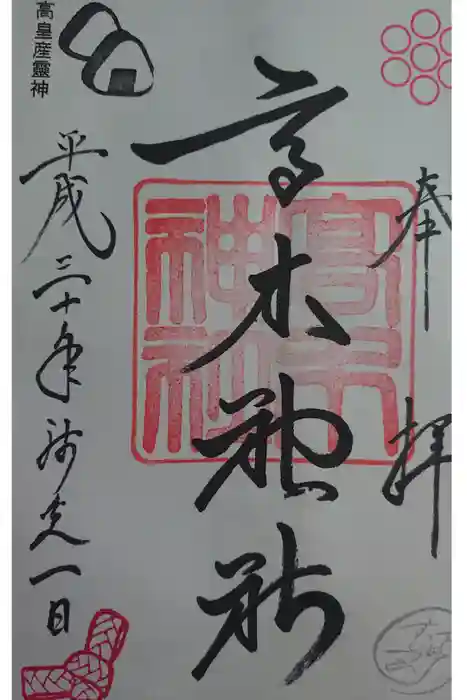 奉拝
高木神社
高木
神社
高皇産靈神
平成三十年師走一日